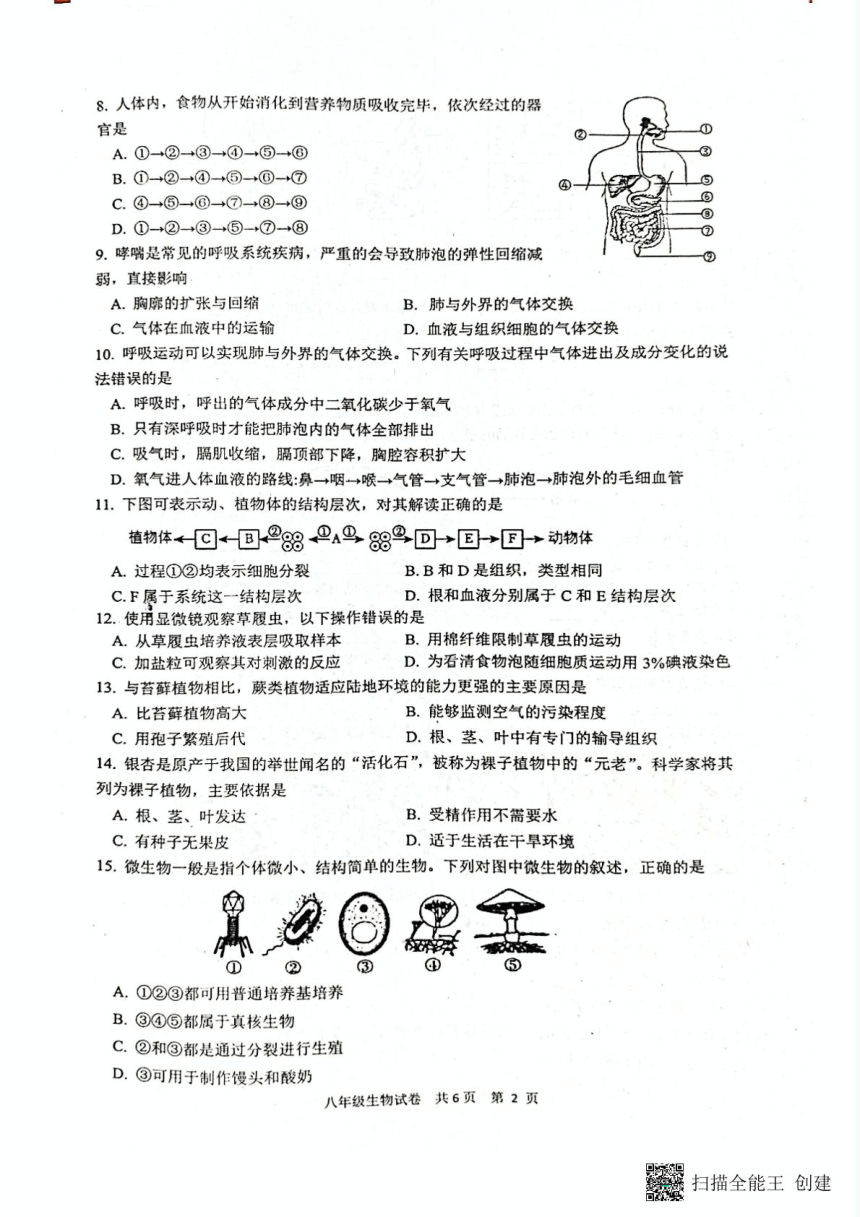 8. 人体内，食物从开始消化到营养物质吸收完毕，依次经过的器
官是
A. ①→②→③→④→⑤→⑥
B. ①→②→④→⑤→⑥→⑦
C. ④→⑤→⑥→⑦→⑧→⑨
D. ①→②→③→⑤→⑦→⑧
① ② ③ ④ ⑤ ⑥ ⑧ ⑦ ⑨
9. 哮喘是常见的呼吸系统疾病，严重的会导致肺泡的弹性回缩减
弱，直接影响
A. 胸廓的扩张与回缩 B. 肺与外界的气体交换
C. 气体在血液中的运输 D. 血液与组织细胞的气体交换
10. 呼吸运动可以实现肺与外界的气体交换。下列有关呼吸过程中气体进出及成分变化的说
法错误的是
A. 呼吸时，呼出的气体成分中二氧化碳少于氧气
B. 只有深呼吸时才能把肺泡内的气体全部排出
C. 吸气时，膈肌收缩，膈顶部下降，胸腔容积扩大
D. 氧气进人体血液的路线:鼻→咽→喉→气管→支气管→肺泡→肺泡外的毛细血管
11. 下图可表示动、植物体的结构层次，对其解读正确的是
植物体←C←B←②←①A①→②→D→E→F→动物体
A. 过程①②均表示细胞分裂 B. B 和 D 是组织，类型相同
C. F 属于系统这一结构层次 D. 根和血液分别属于 C 和 E 结构层次
12. 使用显微镜观察草履虫，以下操作错误的是
A. 从草履虫培养液表层吸取样本 B. 用棉纤维限制草履虫的运动
C. 加盐粒可观察其对刺激的反应 D. 为看清食物泡随细胞质运动用 3%碘液染色
13. 与苔藓植物相比，蕨类植物适应陆地环境的能力更强的主要原因是
A. 比苔藓植物高大 B. 能够监测空气的污染程度
C. 用孢子繁殖后代 D. 根、茎、叶中有专门的输导组织
14. 银杏是原产于我国的举世闻名的“活化石”，被称为裸子植物中的“元老”。科学家将其
列为裸子植物，主要依据是
A. 根、茎、叶发达 B. 受精作用不需要水
C. 有种子无果皮 D. 适于生活在干旱环境
15. 微生物一般是指个体微小、结构简单的生物。下列对图中微生物的叙述，正确的是
① ② ③ ④ ⑤
A. ①②③都可用普通培养基培养
B. ③④⑤都属于真核生物
C. ②和③都是通过分裂进行生殖
D. ③可用于制作馒头和酸奶
八年级生物试卷 共 6 页 第 2 页
扫描全能王 创建